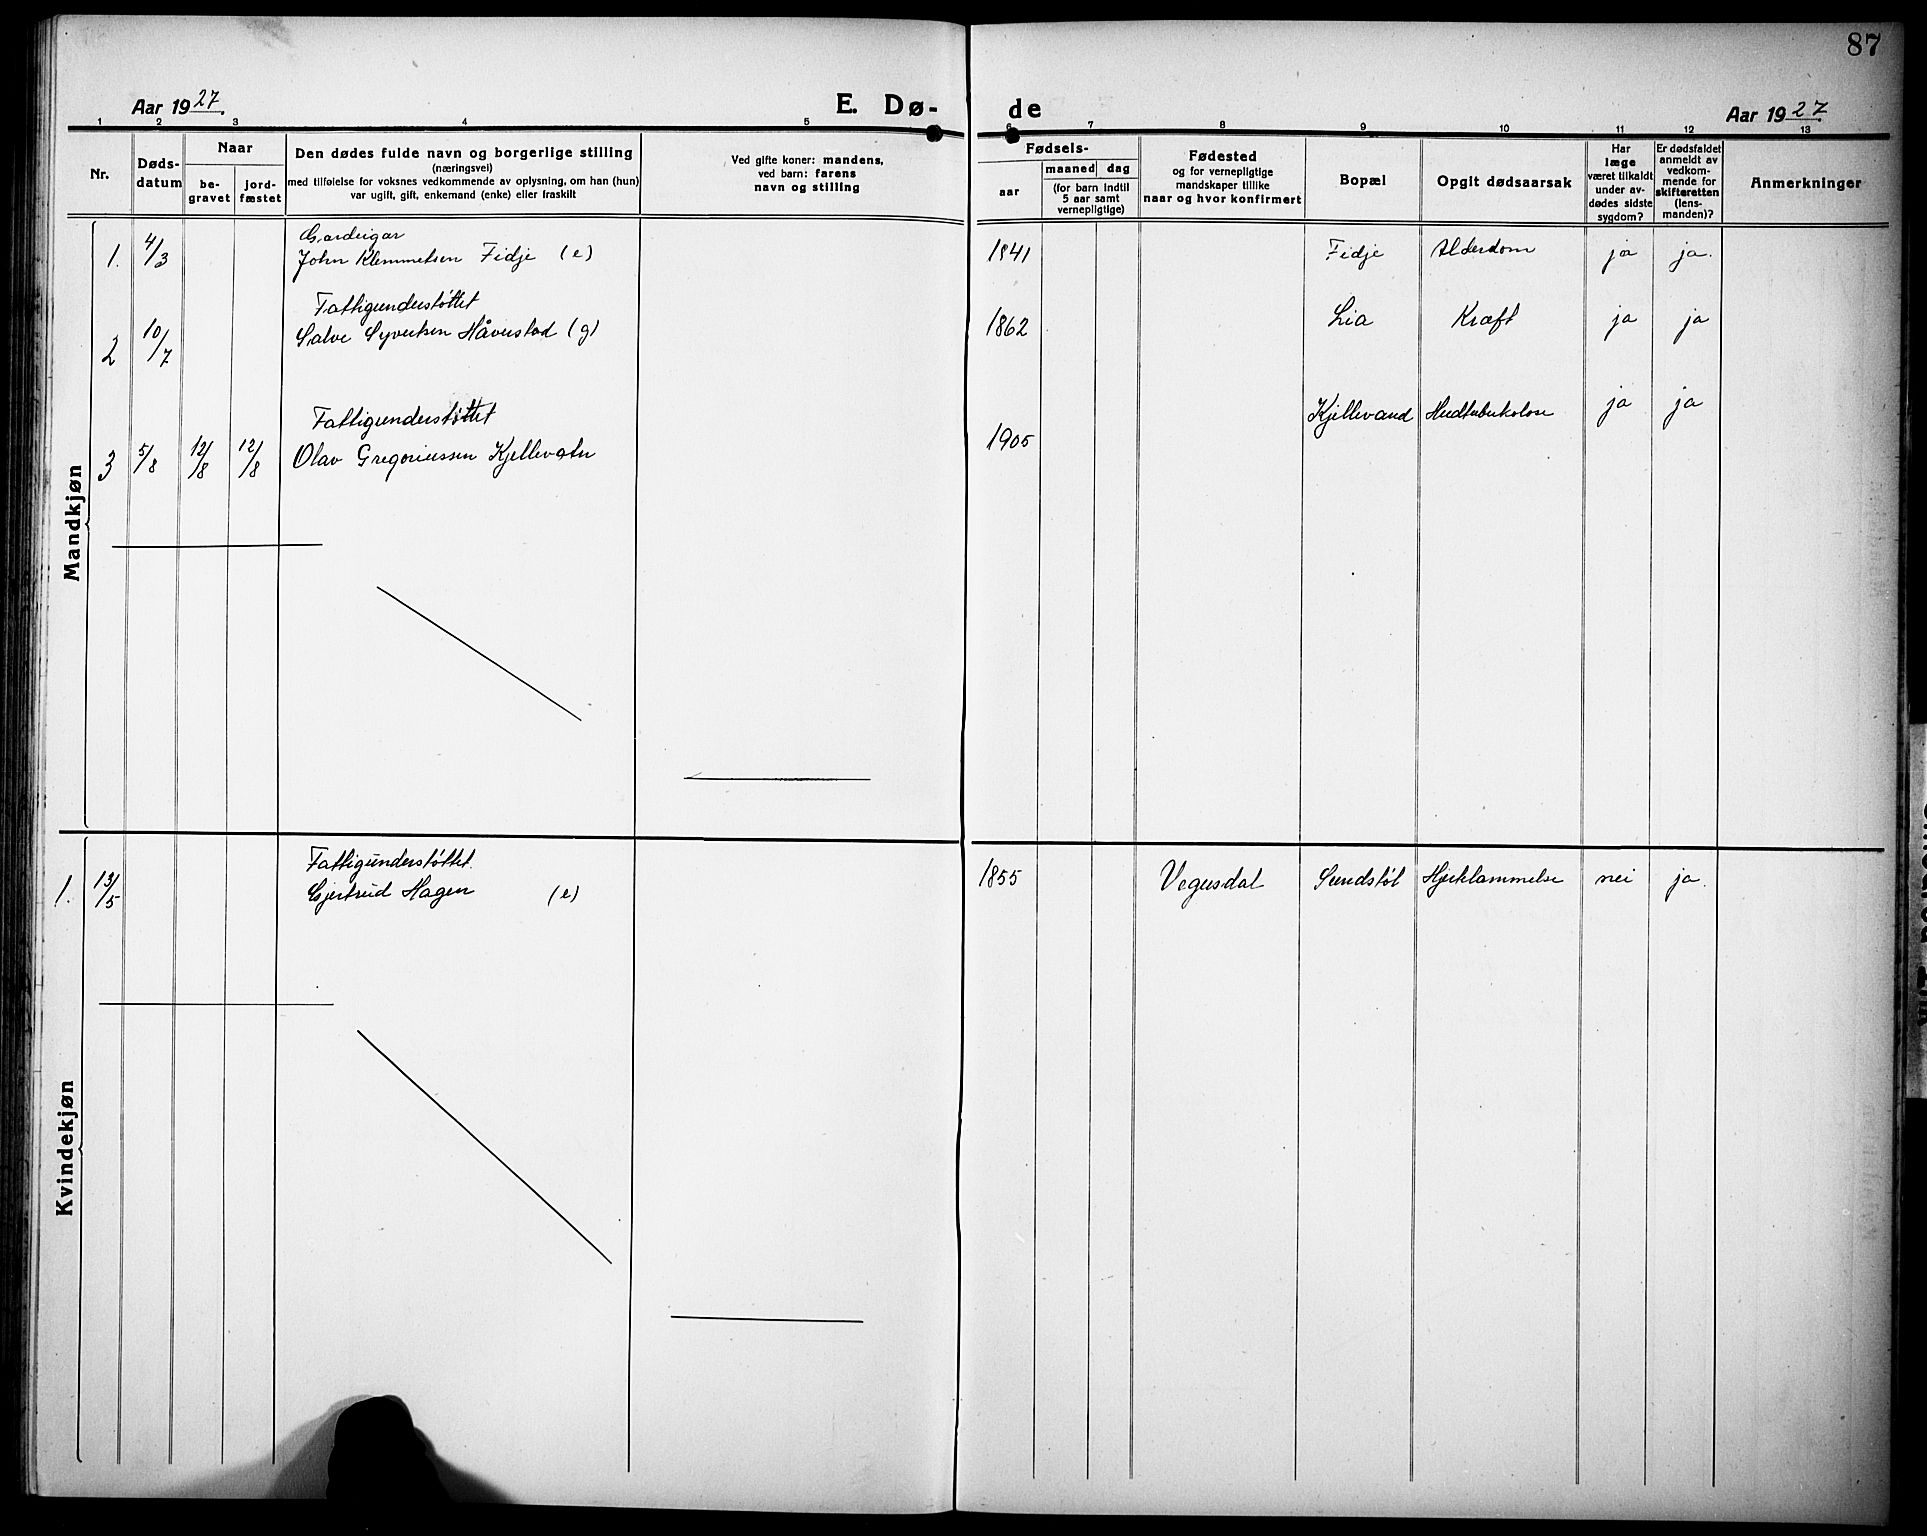 87
Aar 1927.
E. Dø-
de
Aar 1927
1 2 3 4 5 6 7 8 9 10 11 12 13
Nr.
Døds-
datum
Naar
be-
gravet
jord-
fæstet
Den dødes fulde navn og borgerlige stilling
(næringsvei)
med tilføielse for voksnes vedkommende av oplysning, om han (hun)
var ugift, gift, enkemand (enke) eller fraskilt
Ved gifte koner: mandens,
ved barn: farens
navn og stilling
Fødsels-
aar
maaned
dag
(for barn indtil
5 aar samt
vernepligtige)
Fødested
og for vernepligtige
mandskaper tillike
naar og hvor konfirmert
Bopæl
Opgit dødsaarsak
Har
læge
været tilkaldt
under av-
dødes sidste
sygdom?
Er dødsfaldet
anmeldt av
vedkom-
mende for
skifteretten
(lens-
manden)?
Anmerkninger
Mandkjøn
Gardeigar
1. 4/3 John Klemmetsen Fidje (e) 1841 Fidje Alderdom ja ja.
Fattigunderstøttet
2 10/7 Salve Syvertsen Håverstad (g) 1862 Lia Kræft ja ja
Fattigunderstøttet Kjellevand Hudtuberkolose ja ja
3 5/8 12/8 12/8 Olav Gregoriussen Kjellevatn 1905
Kvindekjøn
Fattigunderstøttet.
1. 13/5 Gjertrud Hagen (e) 1855 Vegusdal Sundstøl Hjerklammelse nei ja.